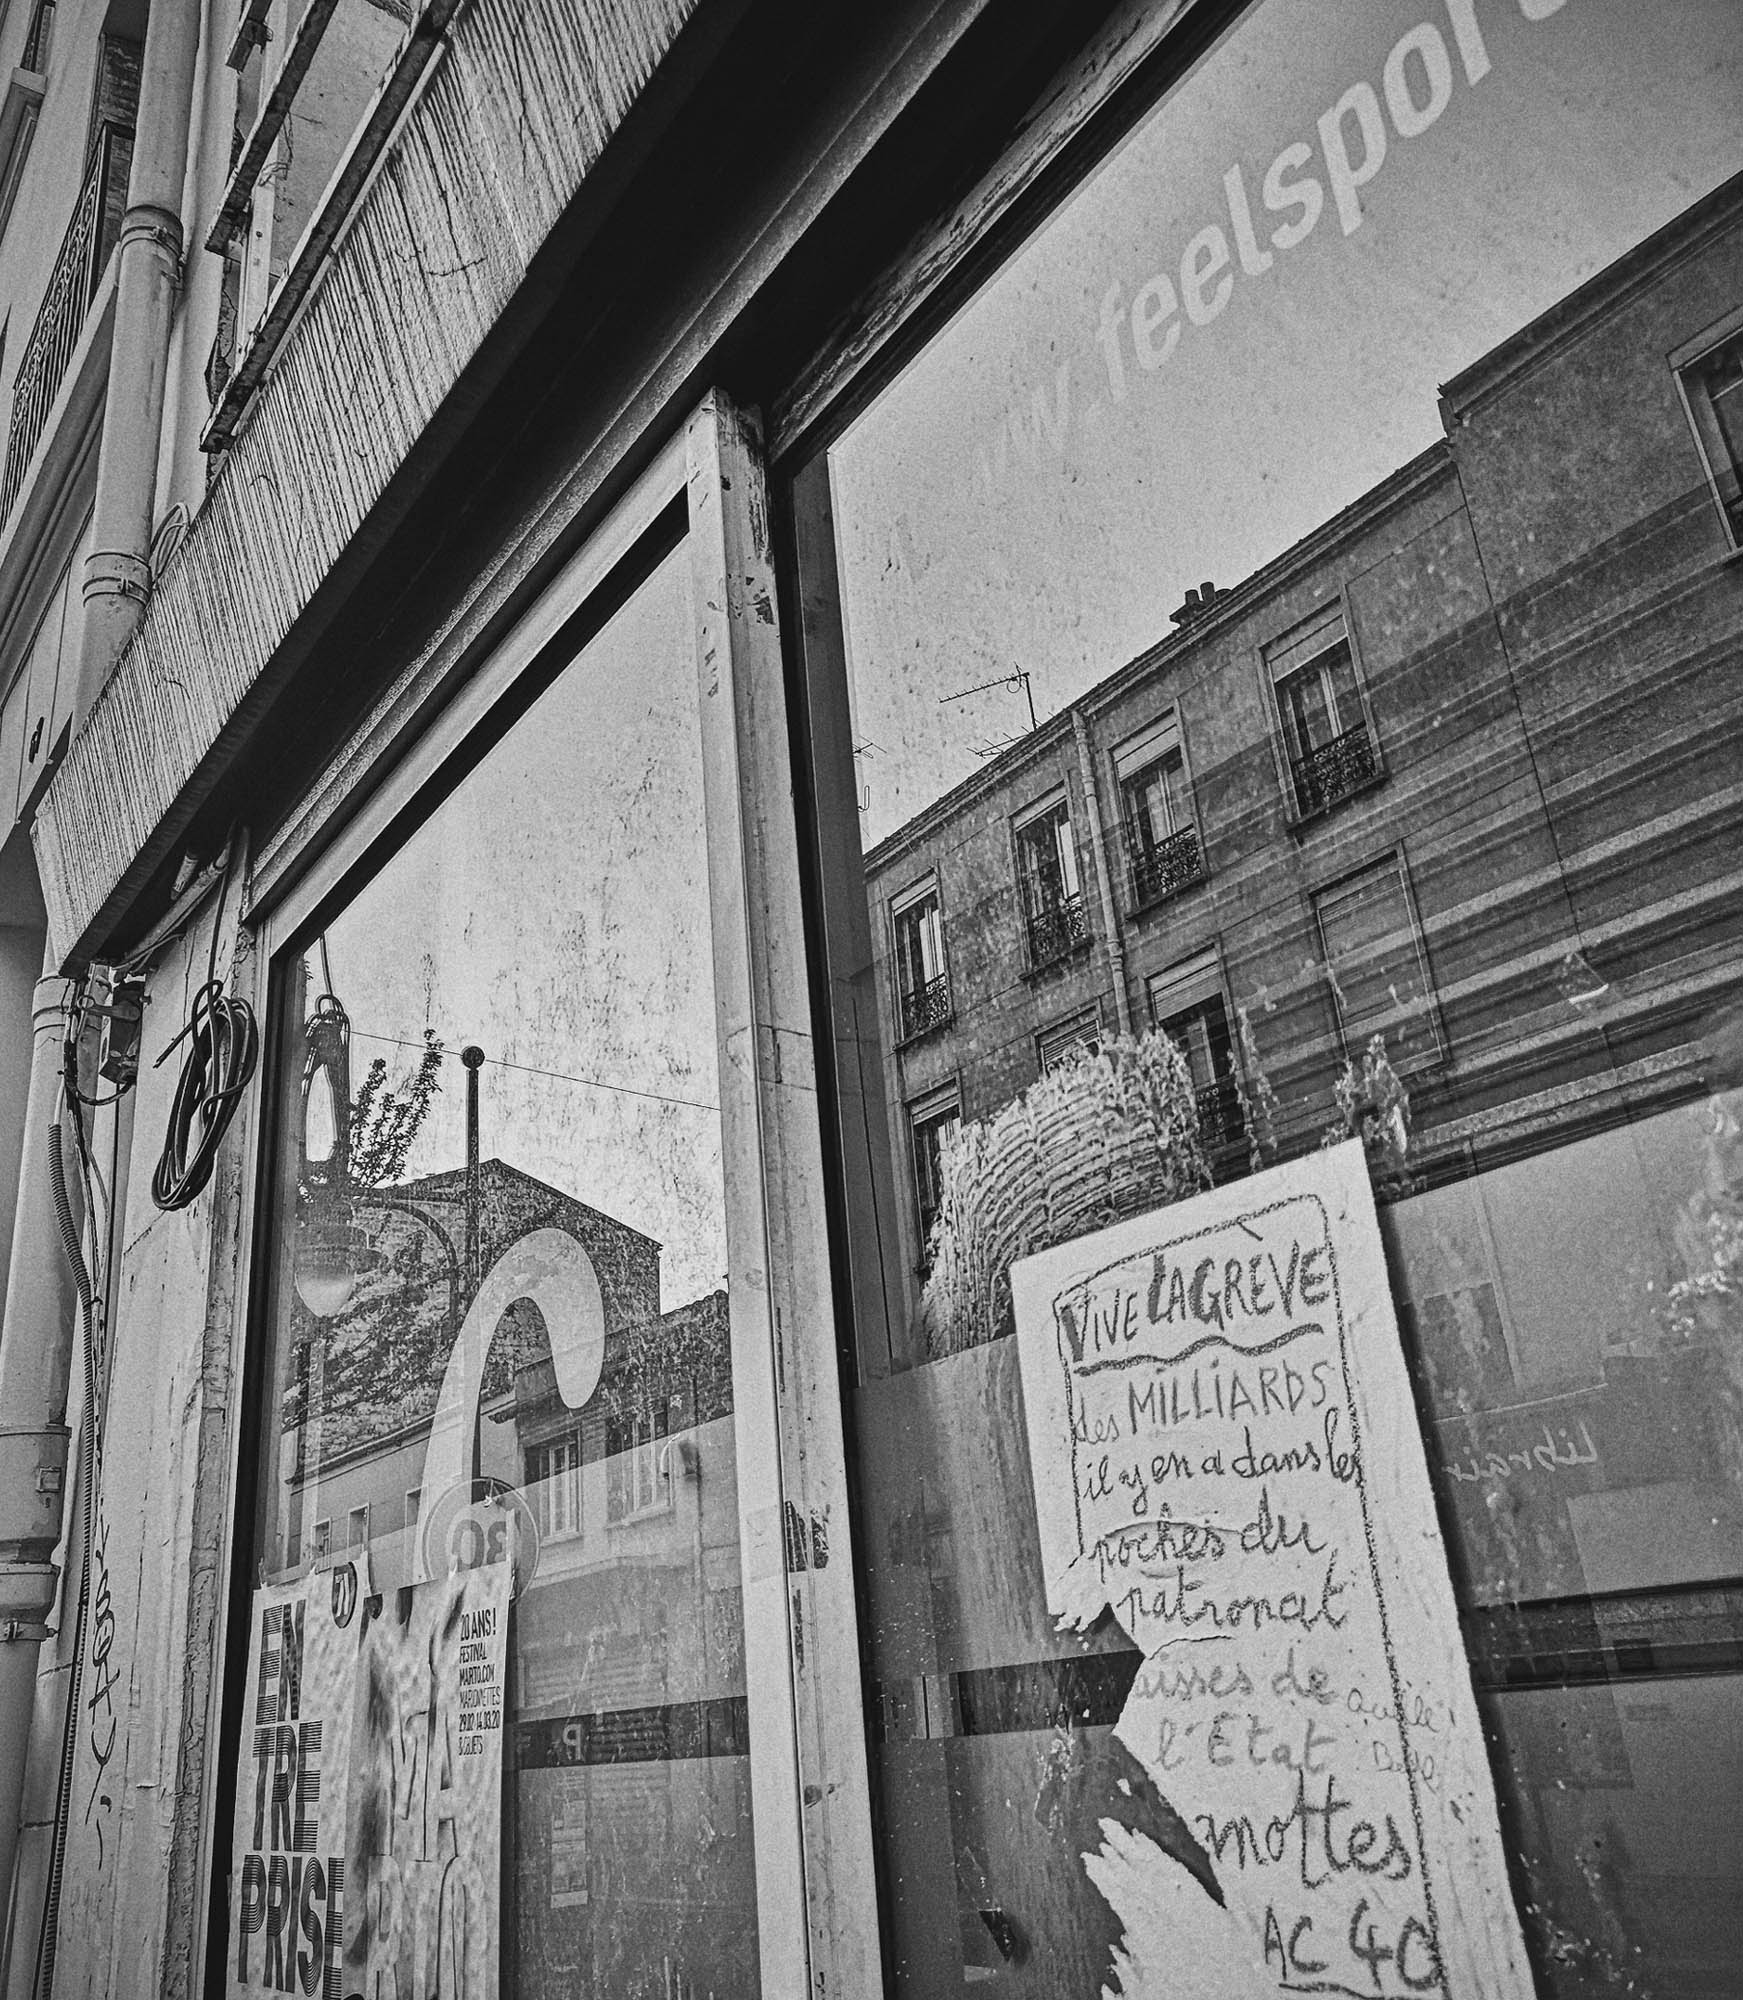 w.feelsport
VIVE LA GRÈVE
des MILLIARDS
il y en a dans les
poches du
patronat
aisses de
l'Etat
mottes
AC 4C
Librair
20 ANS !
FESTIVAL
MARTO.COM
MARIONNETTES
29.02-14.03.20
& OBJETS
EN
TRE
PRISE
P